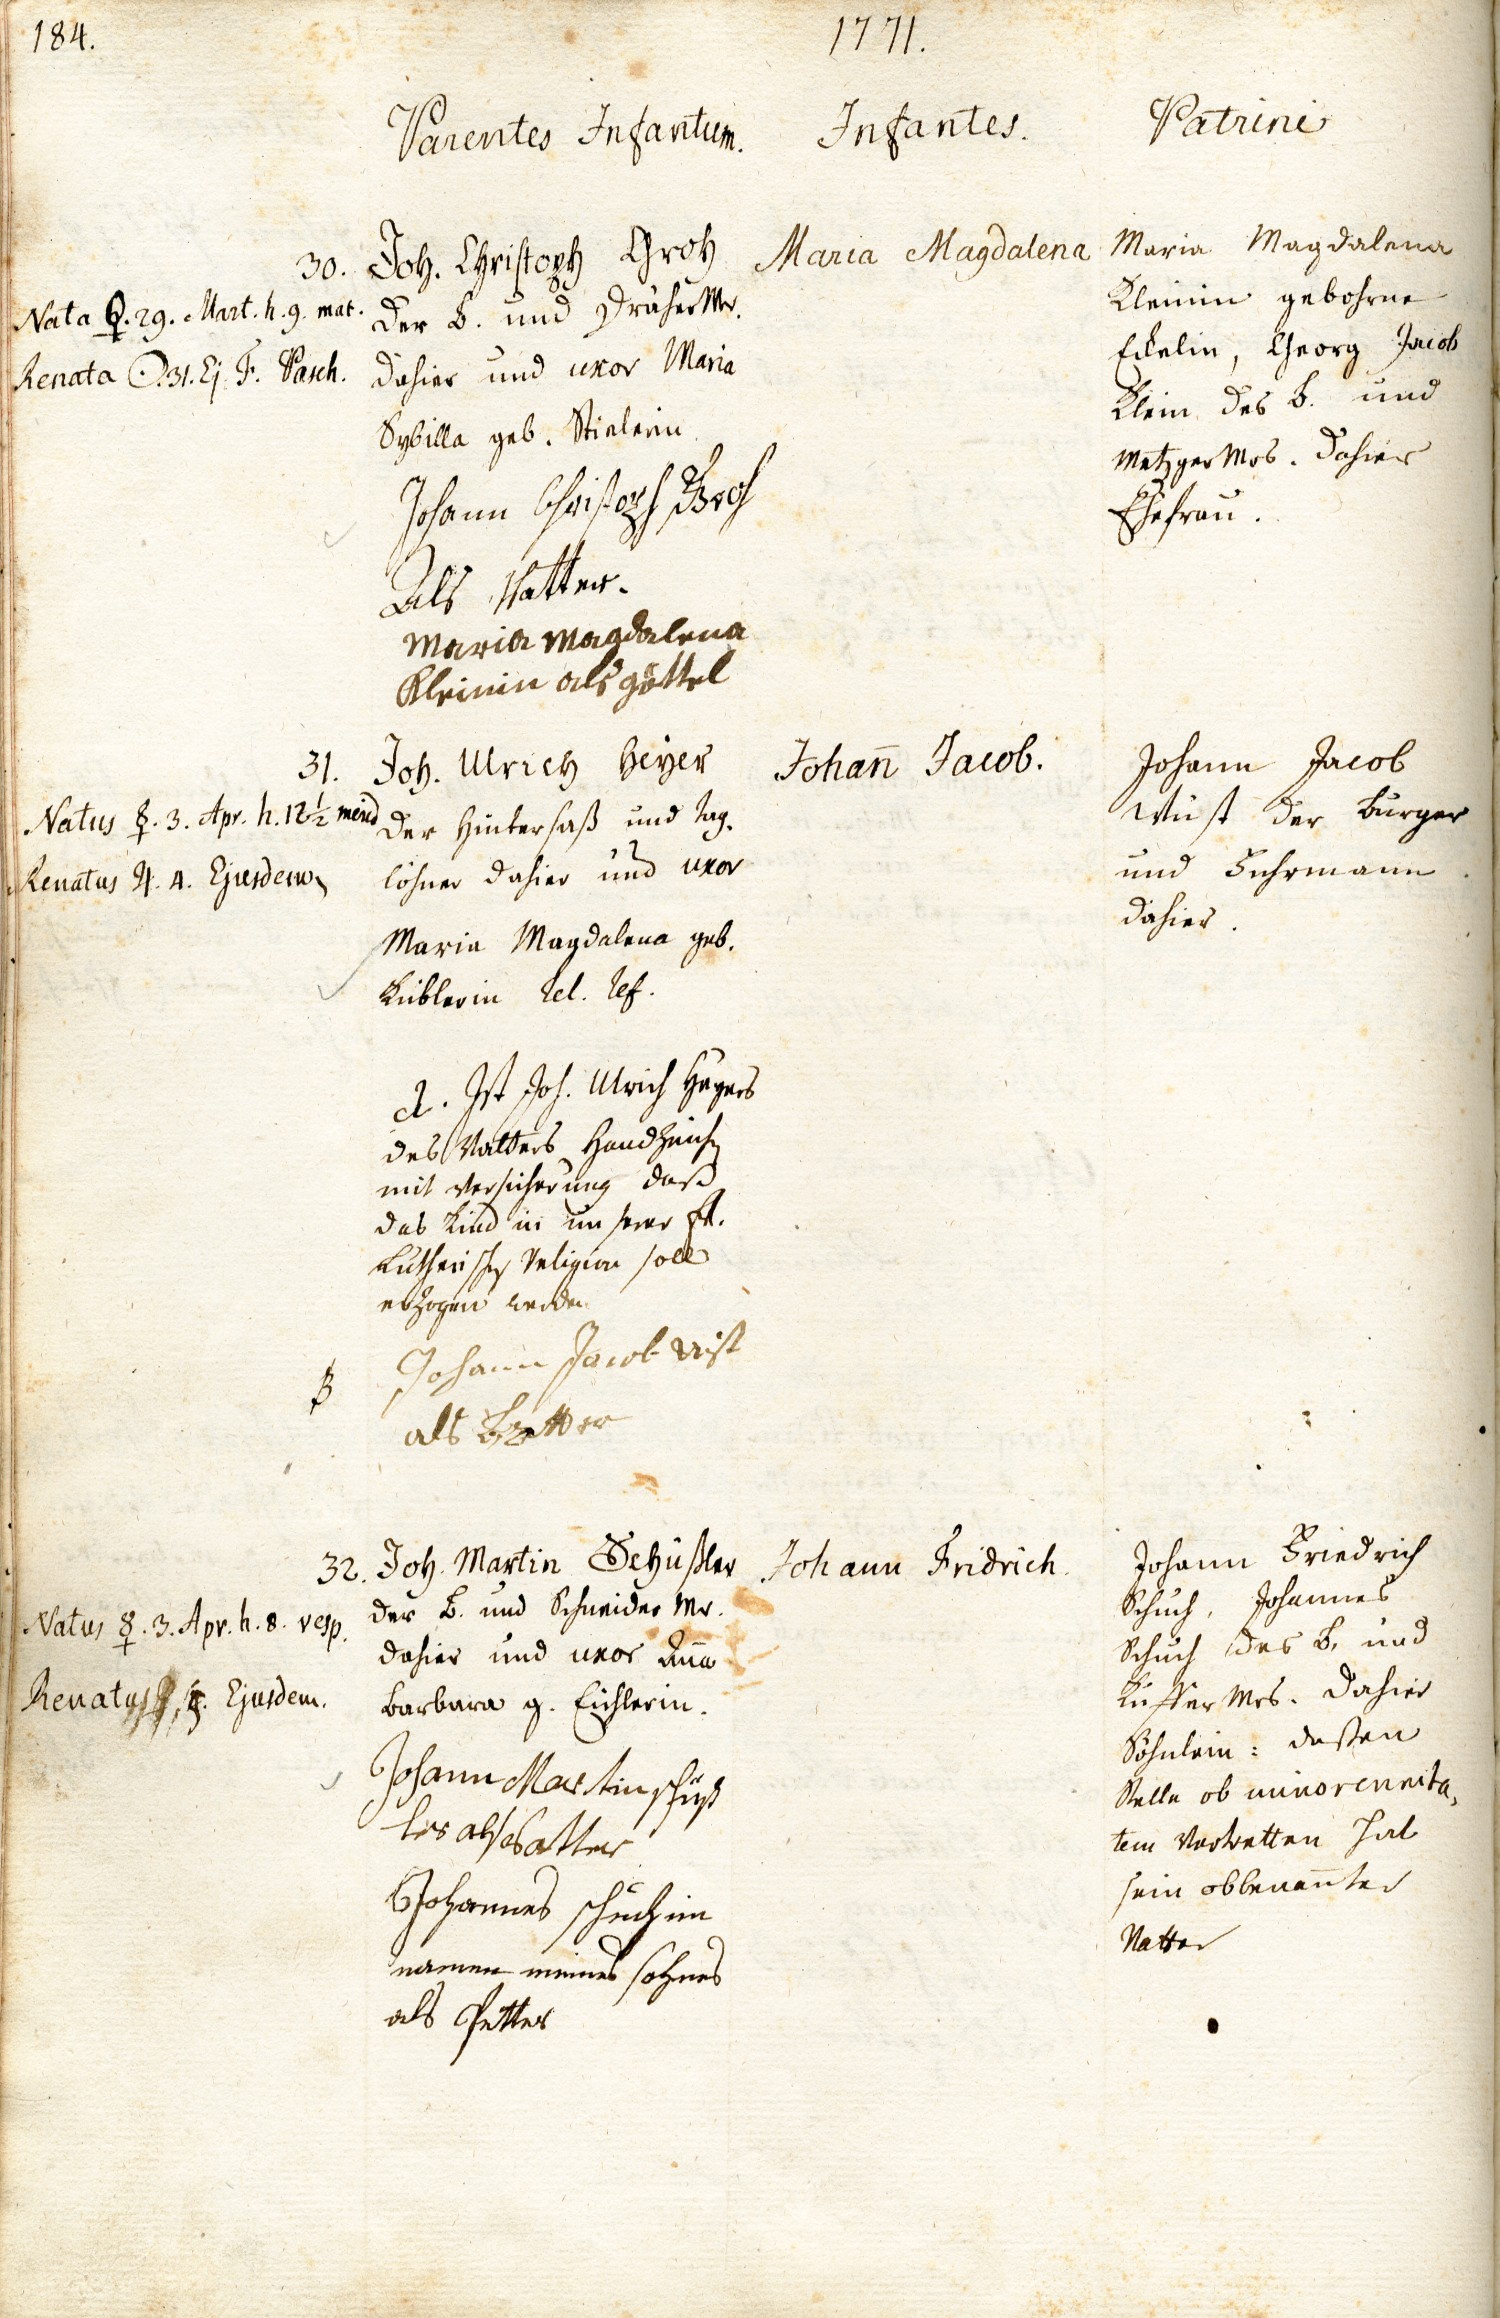 184.
1771.
Parentes Infantum.
Infantes.
Patrini
30.
Nata ♀. 29. Mart. h. 9. mat.
Renata ☉. 31. Ej. F. Pasch.
Joh. Christoph Groh
der B. und Dräher Mr.
dahier und uxor Maria
Sybilla geb. Stielerin
Johann Christoph Groh
Als Vatter.
Maria Magdalena
Kleinin als göttel
Maria Magdalena
Maria Magdalena
Kleinin gebohrne
Eckelin, Georg Jacob
Klein des B. und
Metzger Mrs. dahier
Ehefrau.
31.
Natus ☿. 3. Apr. h. 12½ merid
Renatus ♃. 4. Ejusdem
Joh. Ulrich Heyer
der Hintersaß und Tag-
löhner dahier und uxor
Maria Magdalena geb.
Küblerin rel. ref.
Ist Joh. Ulrich Heyers
des Vatters Handzeichen
mit Versicherung daß
das Kind in unserer Ev.
Lutherischen Religion soll
erzogen werden
Johann Jacob Wist
als
Johan̄ Jacob.
Johann Jacob
Wüst der Burger
und Fuhrmann
dahier.
32.
Natus ☿. 3. Apr. h. 8. vesp.
Renatus Ejusdem.
Joh. Martin Schüßler
der B. und Schneider Mr.
dahier und uxor Añna
Barbara g. Eichlerin.
Johann Martin schüß
ler als Vatter
Johannes schuch im
namen meines sohnes
als Petter
Johann Fridrich.
Johann Friedrich
Schuch, Johannes
Schuch des B. und
Küffer Mrs. dahier
Söhnlein: deßen
Stelle ob minorennita-
tem vertretten hat
sein obbenan̄ter
Vatter